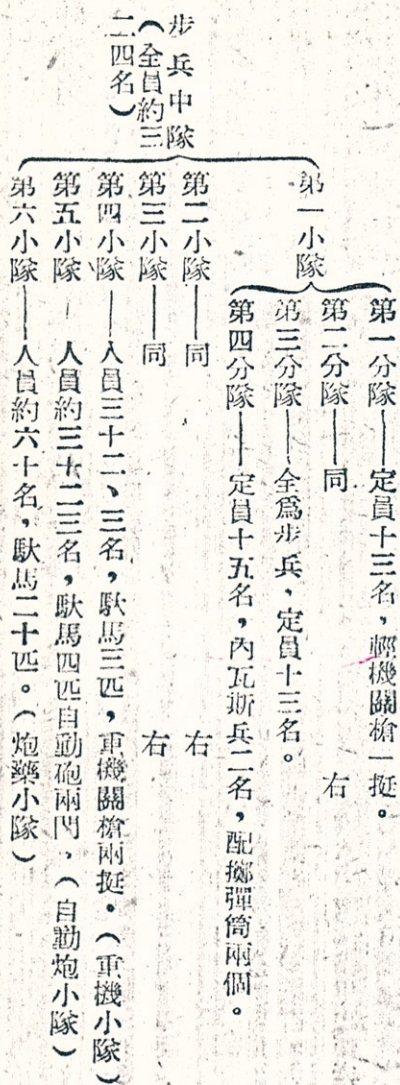 步兵中隊
（全員約三
二四名）
第一小隊
第一分隊——定員十三名，輕機關槍一挺。
第二分隊——同　右
第三分隊——全爲步兵，定員十三名。
第四分隊——定員十五名，內瓦斯兵二名，配擲彈筒兩個。
第二小隊——同　右
第三小隊——同　右
第四小隊——人員三十二、三名，馱馬三匹，重機關槍兩挺。（重機小隊）
第五小隊—人員約三十二三名，馱馬四匹自動砲兩門，（自動炮小隊）
第六小隊——人員約六十名，馱馬二十匹。（炮藥小隊）